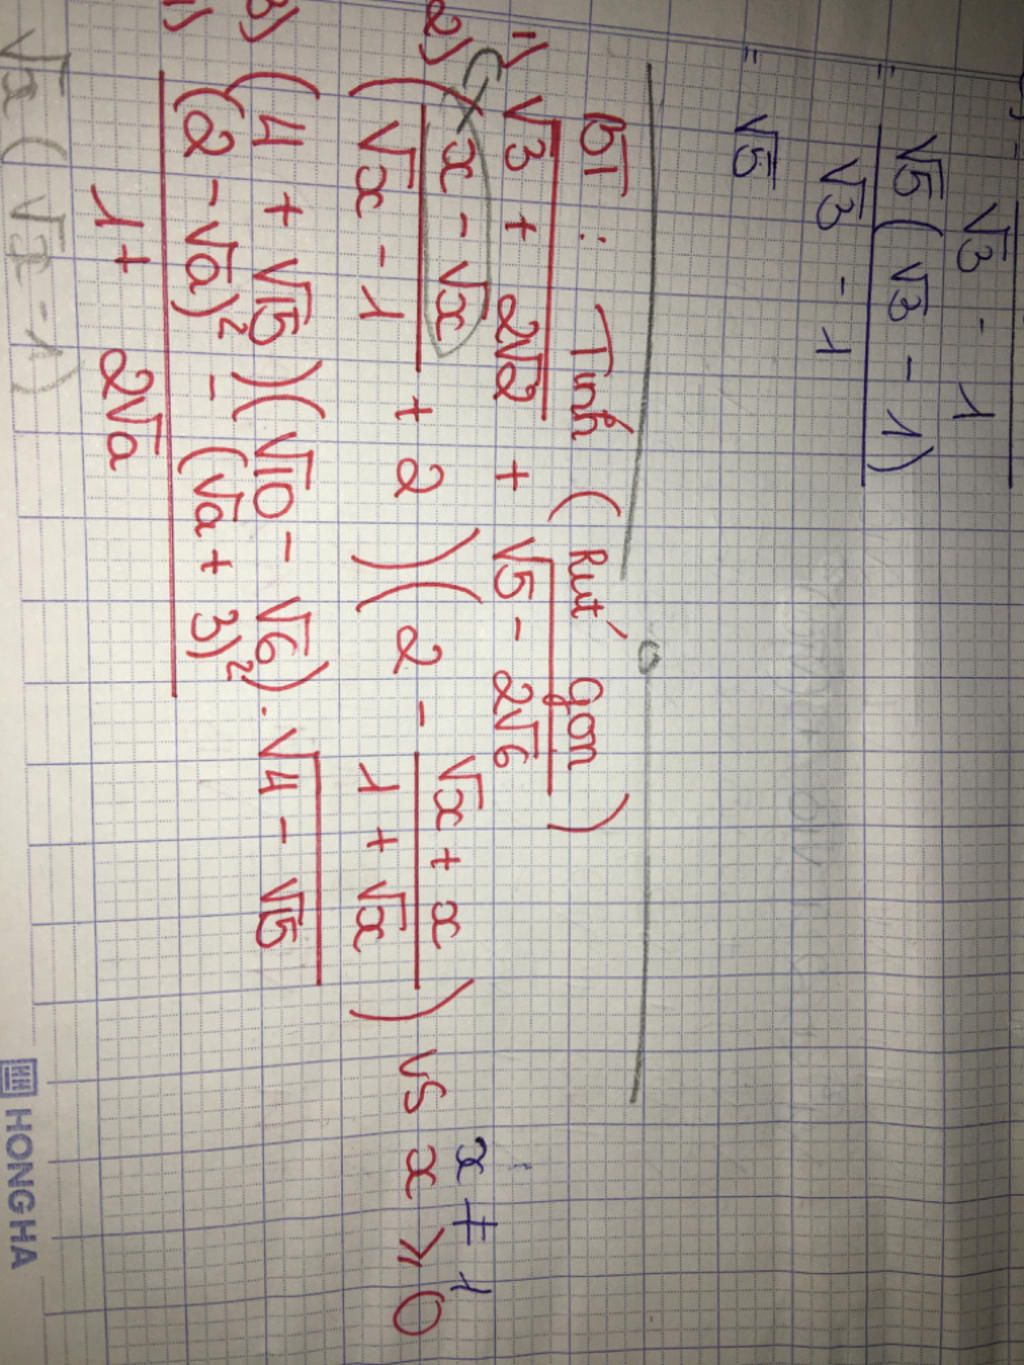 √3 - 1
= √5(√3 - 1)
√3 - 1
= √5
BT : Tính (Rút gọn)
1) √(3 + 2√2) + √(5 - 2√6)
2) ((x - √x)/(√x - 1) + 2)(2 - (√x + x)/(1 + √x)) vs x ≥ 0 x ≠ 1
3) (4 + √15)(√10 - √6).√(4 - √15)
(2 - √a)² - (√a + 3)²
1 + 2√a
√x(√x - 1)
HONG HA